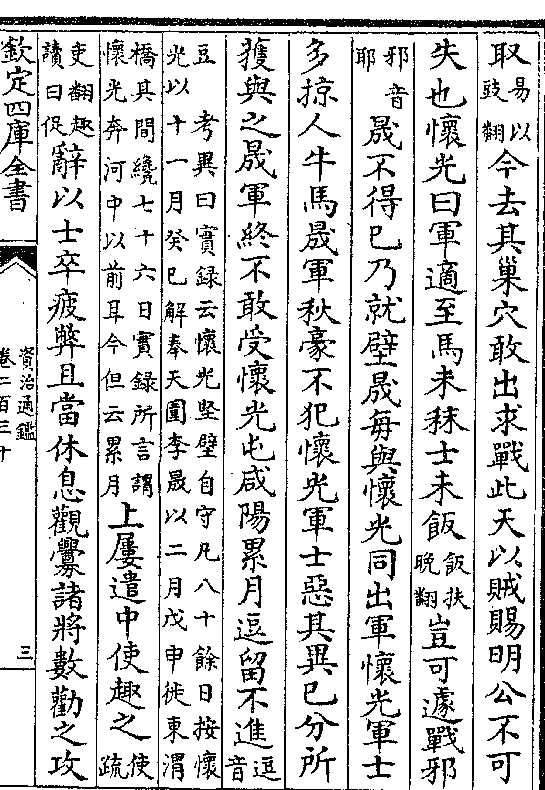 取易以豉翻今去其巢穴敢出求戰此天以賊賜明公不可
失也懷光曰軍適至馬未秣士未飯飯扶晚翻豈可遽戰邪
邪音耶晟不得已乃就壁晟每與懷光同出軍懷光軍士
多掠人牛馬晟軍秋豪不犯懷光軍士惡其異已分所
獲與之晟軍終不敢受懷光屯咸陽累月逗留不進逗音
豆 考異曰實録云懷光堅壁自守凡八十餘日按懷
光以十一月癸巳解奉天圍李晟以二月戊申徙東渭
橋其間纔七十六日實録所言謂
懷光奔河中以前耳今但云累月上屢遣中使趣之使疏
吏翻趣讀曰促辭以士卒疲弊且當休息觀釁諸將數勸之攻
欽定四庫全書
資治通鑑
卷二百三十
三